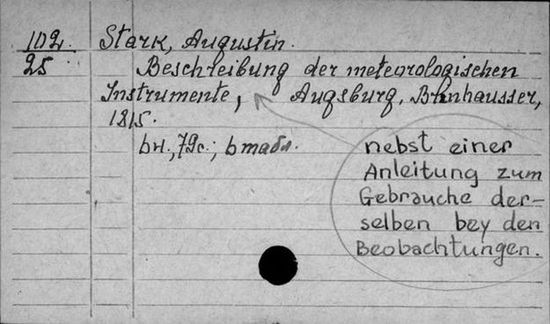 102
25
Stark, Augustin.
Beschreibung der meteorologischen
Instrumente, Augsburg, Brinhausser,
1815.
6н., 79с.; 6 табл.
nebst einer
Anleitung zum
Gebrauche der-
selben bey den
Beobachtungen.